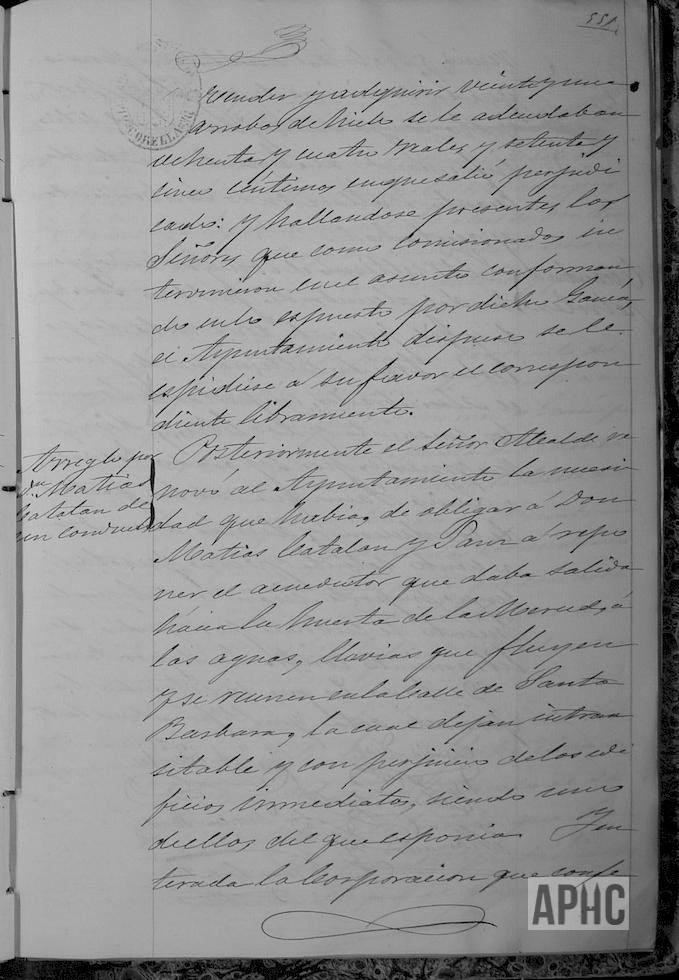 551
vender y adquirir veinte y una
arrobas de hielo se le adeudaban
ochenta y cuatro reales y setenta y
cinco céntimos en que salió perjudi
cado: y hallandose presentes los
Señores que como comisionados in
tervinieron en el asunto conforman
do en lo espuesto por dicho Garcia,
el Ayuntamiento dispuso se le
espidiese á su favor el correspon
diente libramiento.
Arreglo por
Dn Matias
Catalan de
un conducto
Posteriormente el Señor Alcalde re
novó al Ayuntamiento la necesi
dad que habia, de obligar á Don
Matias Catalan y á repo
ner el acueductor que daba salida
hácia la huerta de la Merced, á
las aguas, lluvias que fluyen
y se reunen en la Calle de Santa
Barbara, la cual dejan intran
sitable y con perjuicio de los edi
ficios inmediatos, siendo uno
de ellos del que esponia En
terada la Corporacion que confe
APHC